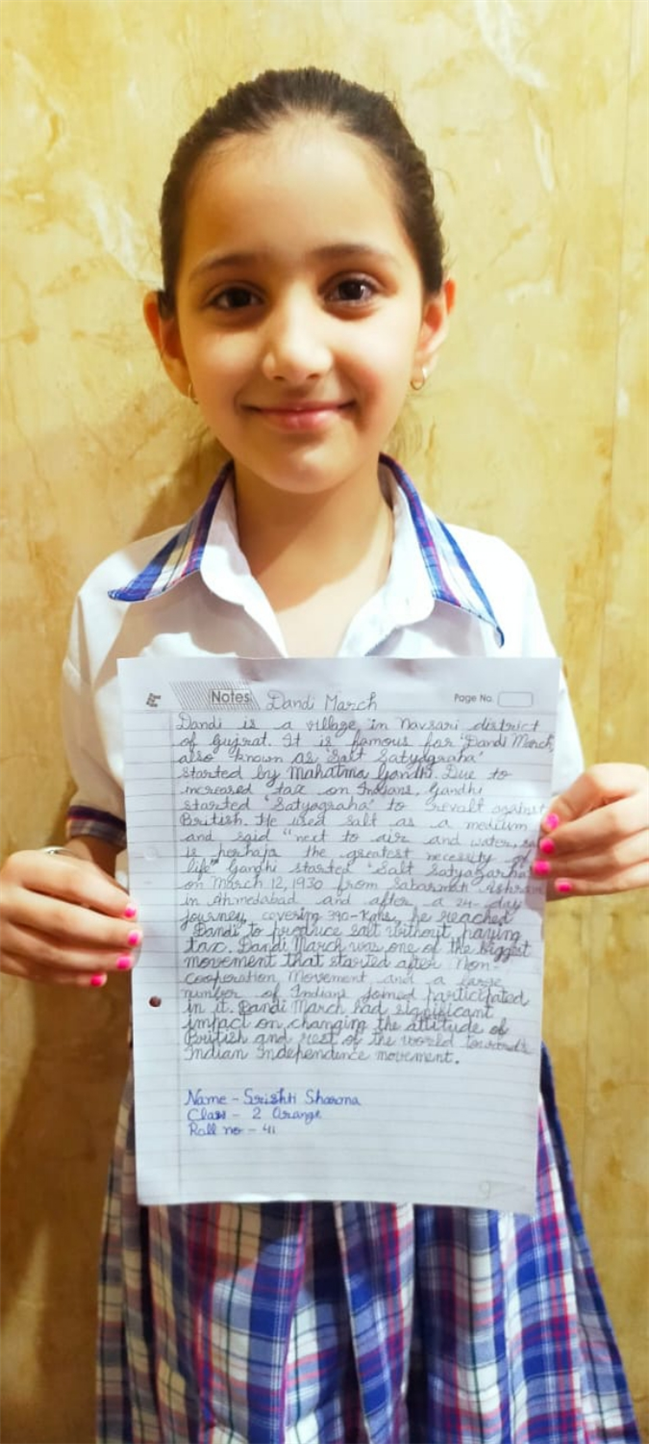 Notes
Dandi March
Page No.
Dandi is a village in Navsari district
of Gujrat. It is famous for 'Dandi March,
also known as 'Salt Satyagraha'
started by Mahatma Gandhi. Due to
increased tax on Indians, Gandhi
started 'Satyagraha' to revalt against
British. He used salt as a medium
and said "next to air and water,
is perhaja the greatest necessity of
life" Gandhi started 'Salt Satyagarha
on March 12, 1930 from Sabarmati Ashram
in Ahmedabad and after a 24-day
journey, covering 390-Kms, he reached
Dandi to produce salt without paying
tax. Dandi March was one of the biggest
movement that started after Non-
cooperation Movement and a large
number of Indians joined participated
in it. Dandi March had significant
impact on changing the attitude of
British and rest of the world towards
Indian Independence movement.
Name - Srishti Sharma
Class - 2 Orange
Roll no - 41